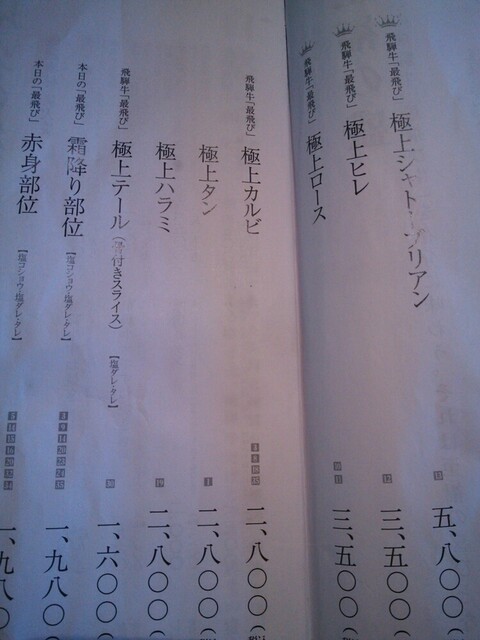 飛騨牛「最飛び」 極上シャトーブリアン 13 五、八〇〇
飛騨牛「最飛び」 極上ヒレ 12 三、五〇〇(
飛騨牛「最飛び」 極上ロース 10 11 三、五〇〇(
飛騨牛「最飛び」 極上カルビ 二、八〇〇(
極上タン 1 二、八〇〇(
極上ハラミ 19 二、八〇〇(
飛騨牛「最飛び」 極上テール(骨付きスライス) 【塩ダレ・タレ】 30 一、六〇〇
本日の「最飛び」 霜降り部位 【塩コショウ・塩ダレ・タレ】 一、九八〇
本日の「最飛び」 赤身部位 【塩コショウ・塩ダレ・タレ】 一、九八